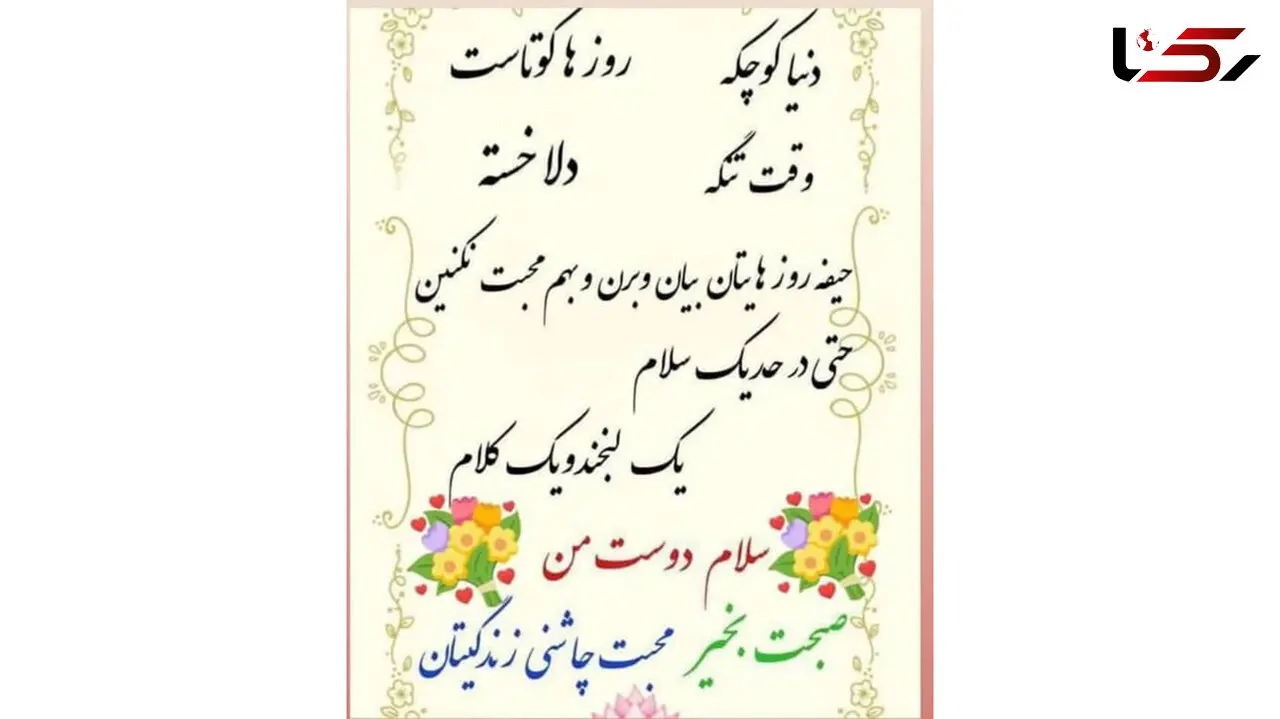 رکنا
دنیا کوچکه روز ها کوتاست
وقت تنگه دلا خسته
حیفه روز هایتان بیان وبرن و بهم محبت نکنین
حتی در حد یک سلام
یک لبخندویک کلام
سلام دوست من
صبحت بخیر محبت چاشنی زندگیتان